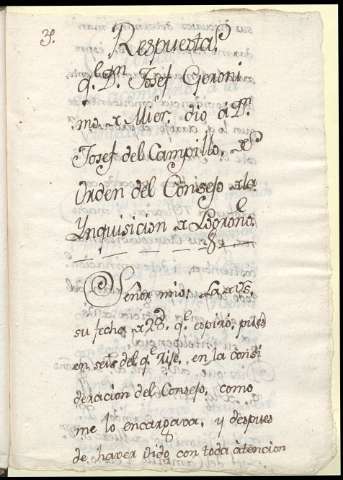 3.
Respuesta,
q.e D.n Josef Geroni
mo de Mier, dio á D.n
Josef del Campillo, de
orden del Consejo de la
Ynquisicion de Logroño.
Señor mio: La de VS.
su fcha, de 28, q.e espiró, puse
en seis del q.e rije, en la consi
deracion del Consejo, como
me lo encargava, y despues
de haver oido con toda atencion